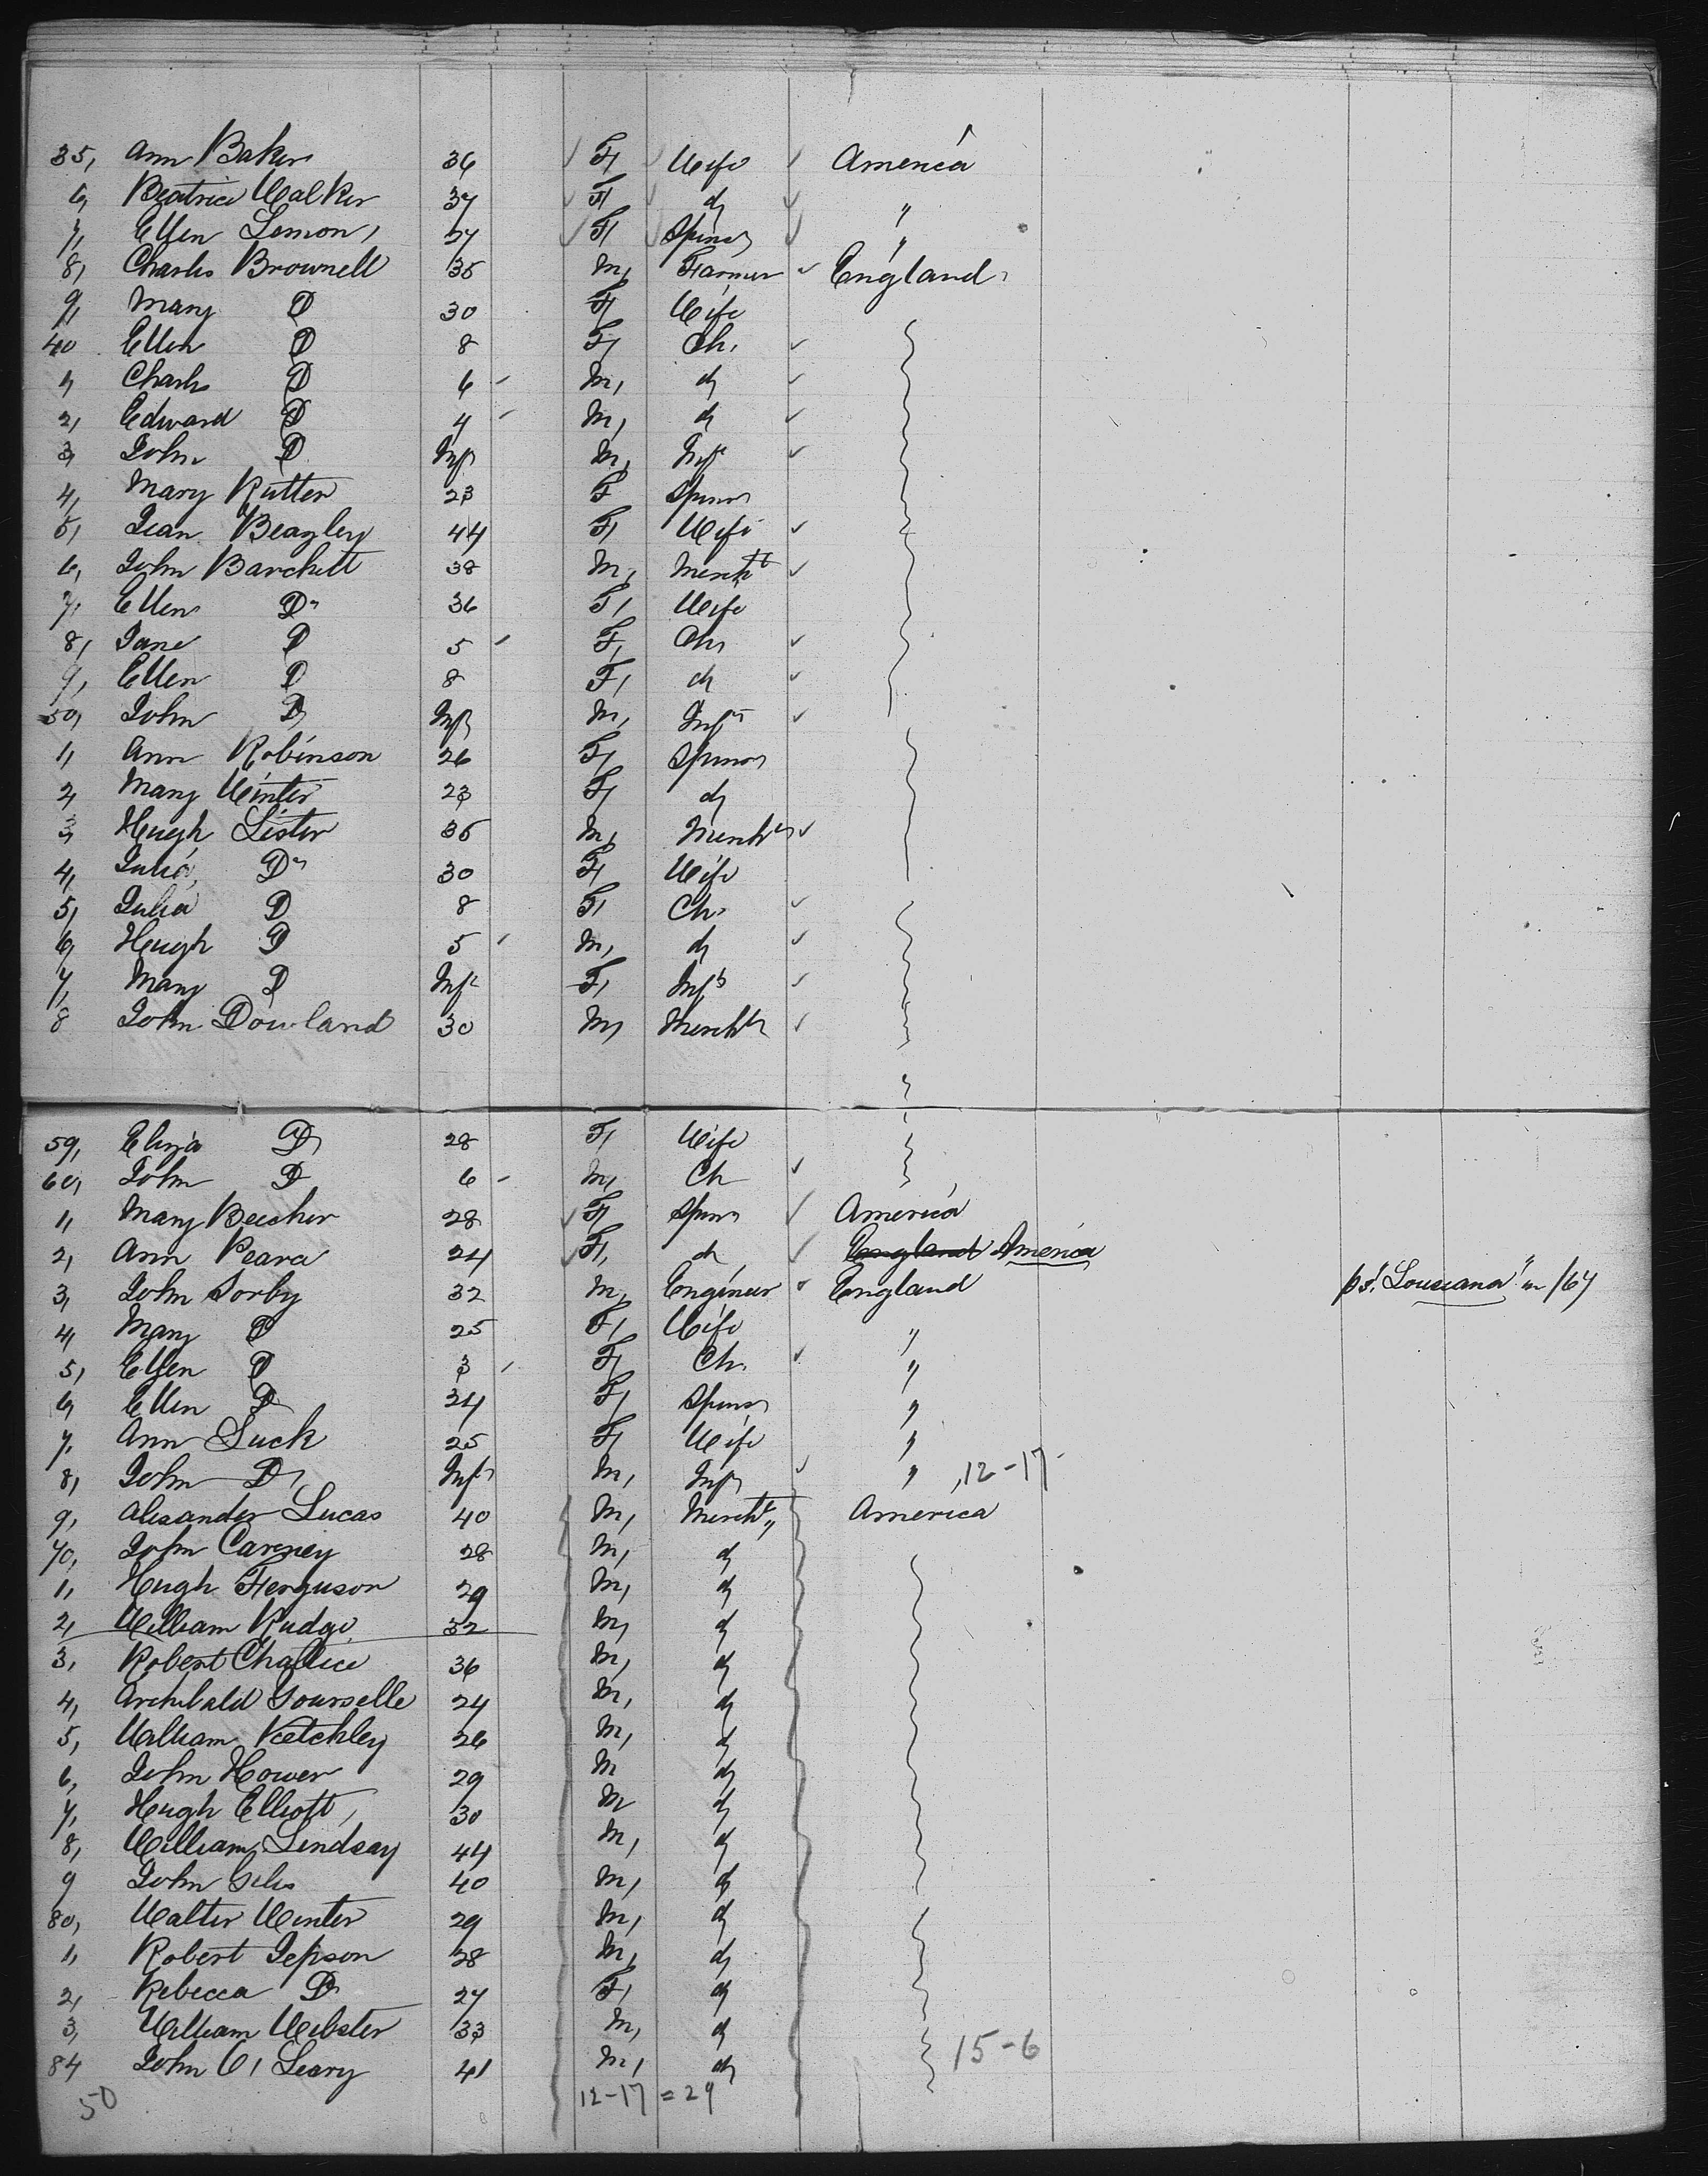 35, Ann Baker 36 F, Wife America
6, Beatrice Walker 37 F, d "
7, Ellen Lemon, 27 F, Spins "
8, Charles Brownell 35 M, Farmer England
9, Mary D 30 F, Wife
40 Ellen D 8 F, Ch.
1, Charls D 6 M, d
2, Edward D 4 M, d
3, John D Inft M, Inft
4, Mary Rutter 23 F Spins
5, Jean Beazley 44 F, Wife
6, John Barchett 38 M, Mercht
7, Ellen Do 36 F, Wife
8, Jane D 5 F, Ch
9, Ellen D 8 F, d
50, John D Inft M, Inft
1, Ann Robinson 26 F, Spins
2, Mary Winter 23 F, d
3, Hugh Lister 35 M, Mercht
4, Julia Do 30 F, Wife
5, Julia D 8 F, Ch.
6, Hugh D 5 M, d
7, Mary D Inft F, Inft
8 John Dowland 30 M, Mercht
59, Eliza D 28 F, Wife
60, John D 6 M, Ch
1, Mary Beecher 28 F, Spins America
2, Ann Peara 24 F, d England America
3, John Sorby 32 M, Engineer England "Lousiana" in /67
4, Mary D 25 F, Wife "
5, Ellen D 3 F, Ch. "
6, Ellen D 34 F, Spins "
7, Ann Suck 25 F, Wife "
8, John D Inft M, Inft " 12-17
9, Alexander Lucas 40 M, Mercht America
70, John Carney 28 M, d
1, Hugh Ferguson 29 M, d
2, William Rudge 32 M, d
3, Robert Challice 36 M, d
4, Archibald Gourselle 24 M, d
5, William Ketchley 26 M, d
6, John Hower 29 M d
7, Hugh Elliott, 30 M d
8, William Lindsay 44 M, d
9 John Giles 40 M, d
80, Walter Winter 29 M, d
1, Robert Jepson 28 M, d
2, Rebecca D 27 F, d
3, William Webster 33 M, d
84 John O, Leary 41 M, d 15-6
50 12-17 = 29